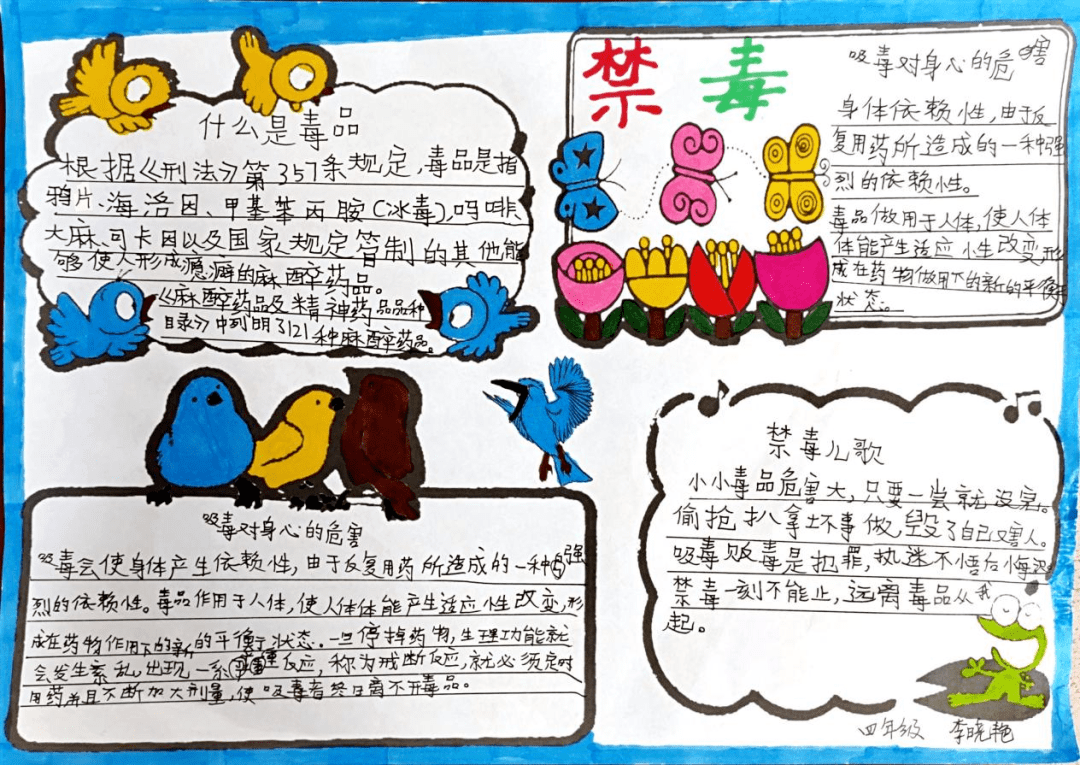 什么是毒品
根据《刑法》第357条规定,毒品是指
鸦片、海洛因、甲基苯丙胺(冰毒),吗啡
大麻可卡因以及国家规定管制的其他能
够使人形成瘾癖的麻醉药品。
《麻醉药品及精神药品品种
目录》中列明了121种麻醉药品。
禁毒
吸毒对身心的危害
身体依赖性,由于反
复用药所造成的一种强
烈的依赖性。
毒品做用于人体,使人体
体能产生适应性改变,形
成在药物做用下的新的平衡
状态。
吸毒对身心的危害
吸毒会使身体产生依赖性,由于反复用药所造成的一种的强
烈的依赖性。毒品作用于人体,使人体体能产生适应性改变,形
成在药物作用下的新的平衡状态。一旦停掉药物,生理功能就
会发生紊乱,出现一系反应,称为戒断反应,就必须定时
用药并且不断加大剂量,使吸毒者终日离不开毒品。
禁毒儿歌
小小毒品危害大,只要一尝就没完。
偷抢扒拿坏事做,毁了自己又害人。
吸毒贩毒是犯罪,执迷不悟后悔迟
禁毒一刻不能止,远离毒品从我
起。
四年级 李晓艳